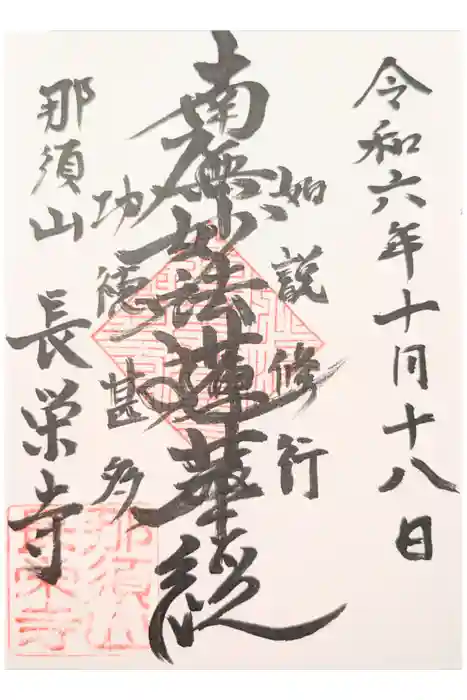 令和六年十月十八日
如説修行
南無妙法蓮華経
功徳甚多
那須山
長栄寺
那須山
長栄寺